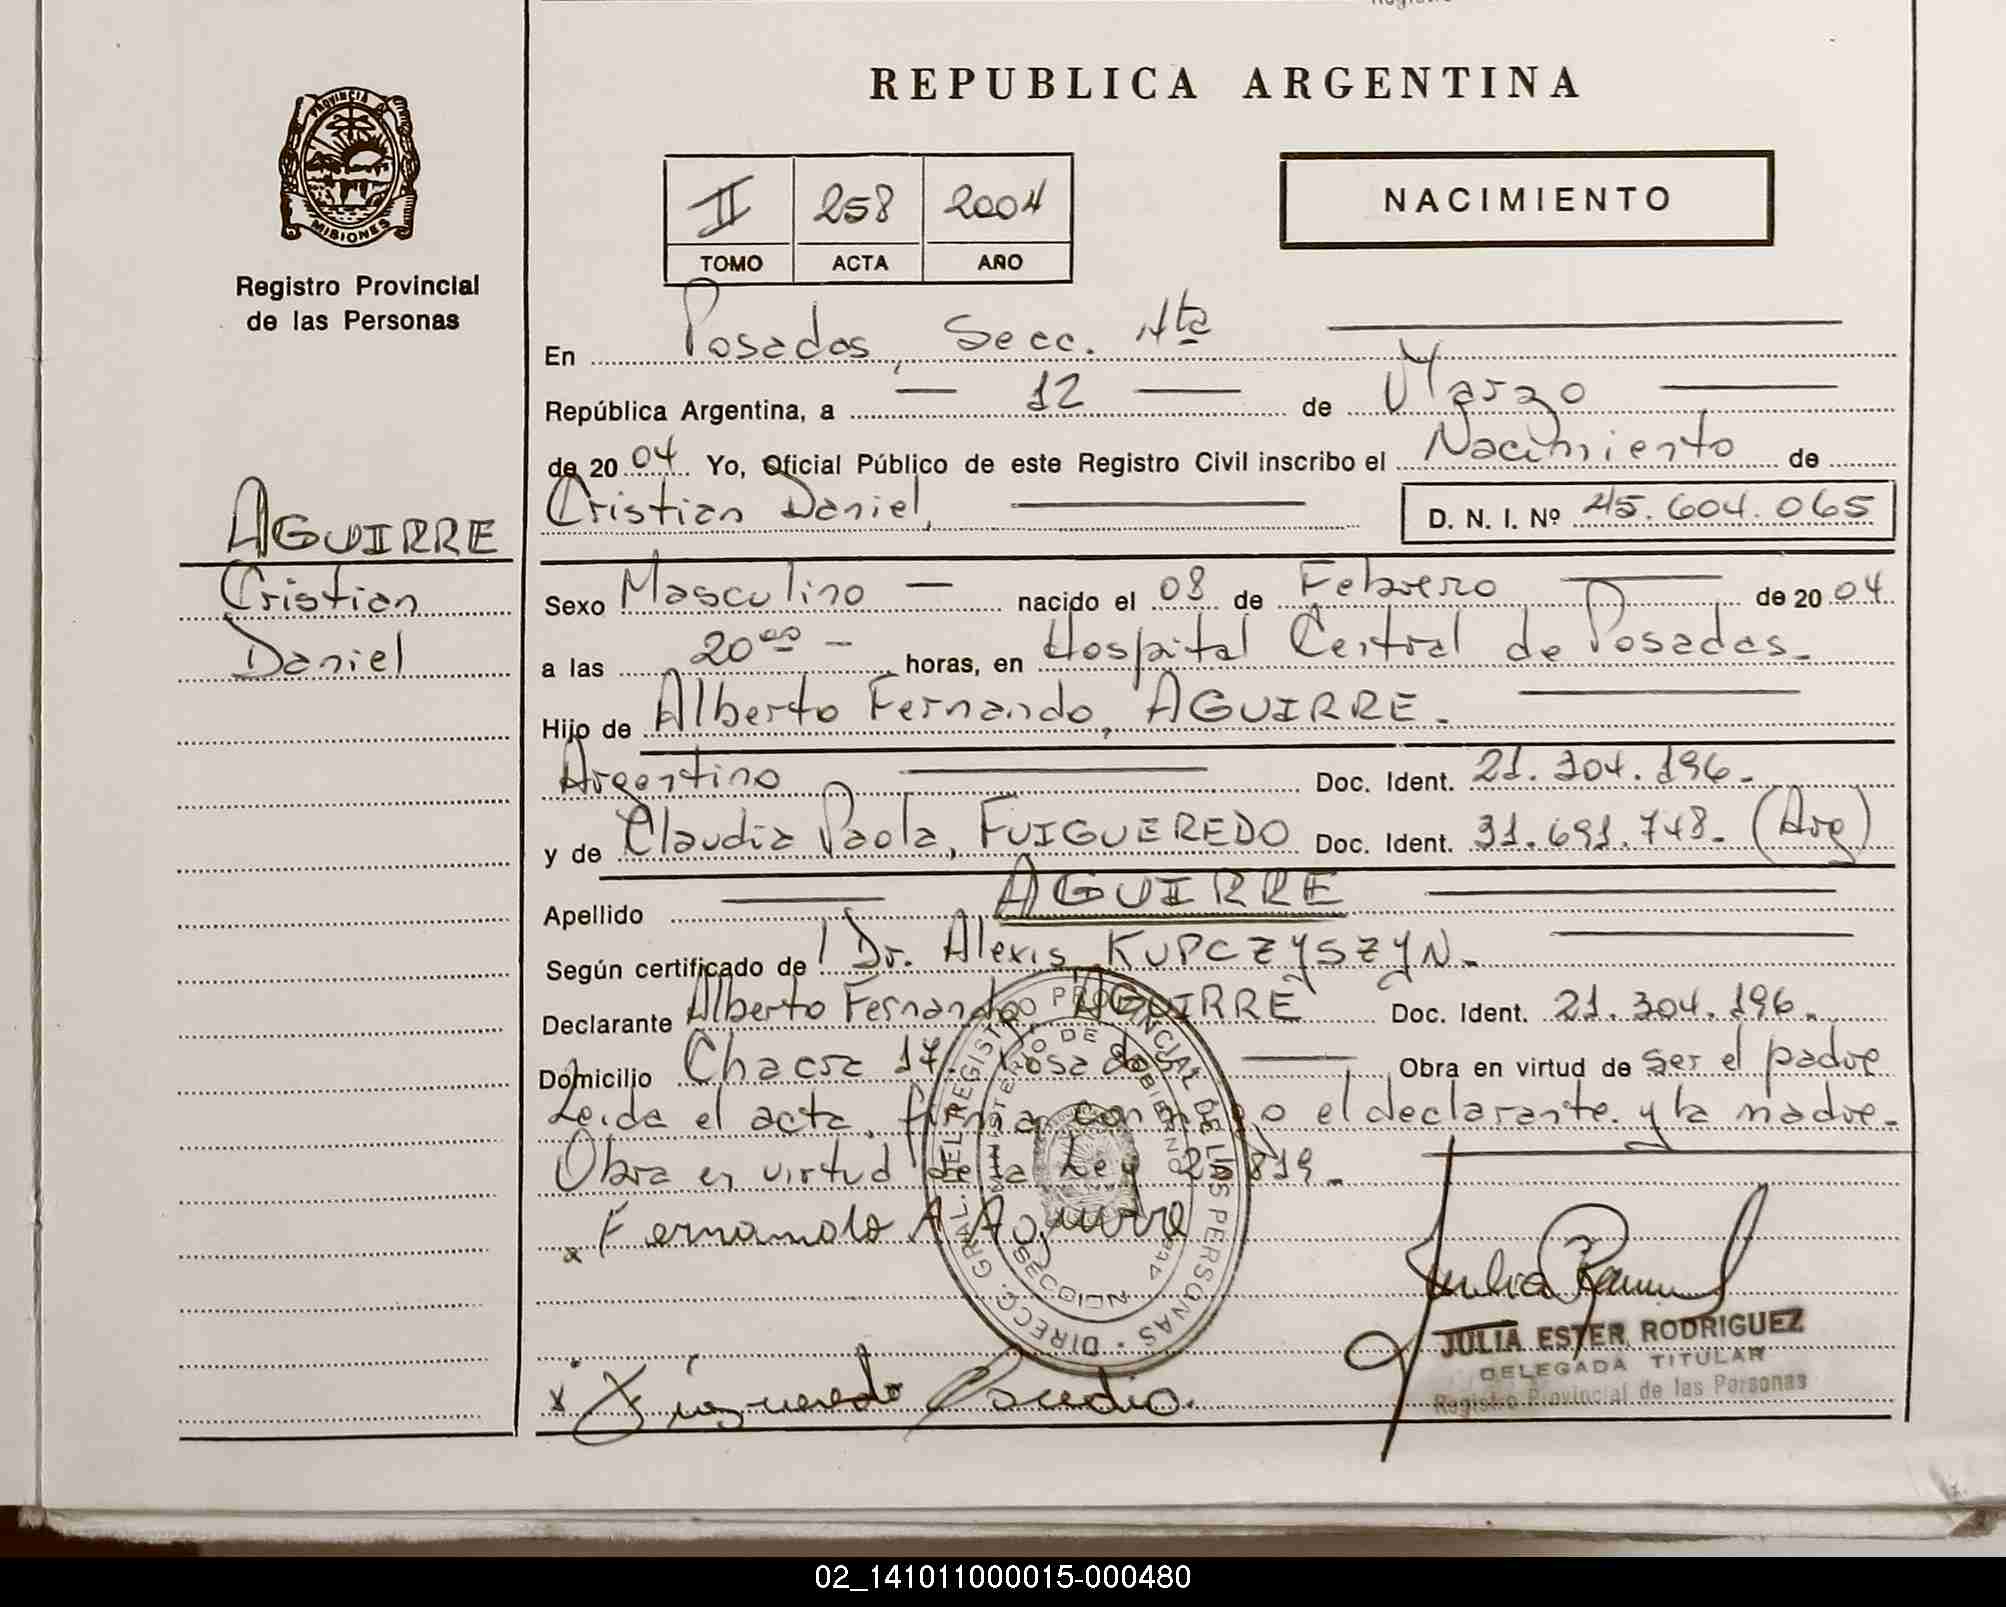 REPUBLICA ARGENTINA
PROVINCIA
MISIONES
Registro Provincial
de las Personas
II 258 2004
TOMO ACTA AÑO
NACIMIENTO
En Posadas, Secc. 4ta
República Argentina, a 12 de Marzo
de 2004 Yo, Oficial Público de este Registro Civil inscribo el Nacimiento de
Cristian Daniel, D. N. I. Nº 45.604.065
AGUIRRE
Cristian
Daniel
Sexo Masculino nacido el 08 de Febrero de 2004
a las 20 horas, en Hospital Central de Posadas.
Hijo de Alberto Fernando, AGUIRRE.
Argentino Doc. Ident. 21.304.196.
y de Claudia Paola, FUIGUEREDO Doc. Ident. 31.691.748. (Arg)
Apellido AGUIRRE
Según certificado de Dr. Alexis KUPCZYSZYN.
Declarante Alberto Fernando AGUIRRE Doc. Ident. 21.304.196.
Domicilio Chacra 17. Posadas Obra en virtud de ser el padre
Leida el acta, firman conmigo el declarante y la madre.
Obra en virtud de la Ley 25.819.
x Fernando A Aguirre
DIRECC. GRAL. DEL REGISTRO PROVINCIAL DE LAS PERSONAS
MINISTERIO DE GOBIERNO
SECCION 4ta
JULIA ESTER RODRIGUEZ
DELEGADA TITULAR
Registro Provincial de las Personas
x Figueredo
02_141011000015-000480